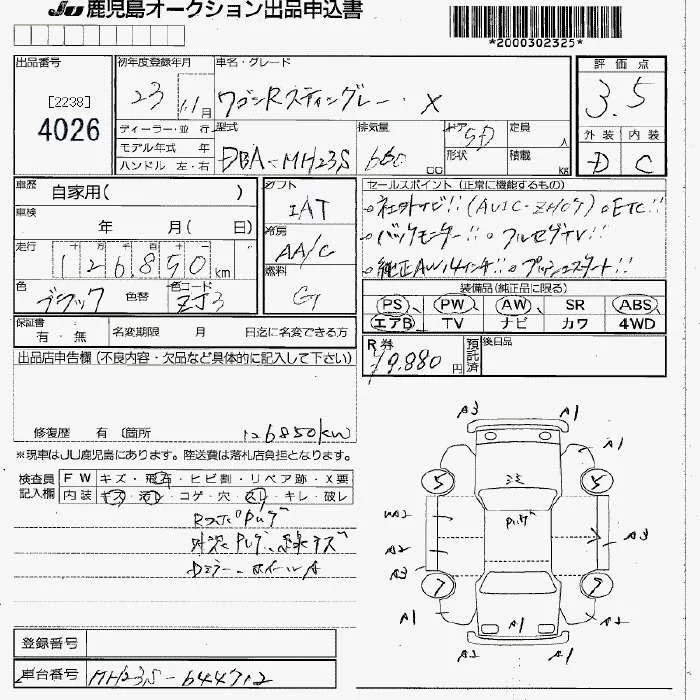 JU 鹿児島オークション出品申込書
*2000302325*
出品番号 初年度登録年月 車名・グレード 評価点
[2238]
4026
23 11月 ワゴンRスティングレー・X 3.5
ディーラー・並行 型式 排気量 ドア 5D 定員 人 外装 内装
モデル年式 年
ハンドル 左・右 DBA-MH23S 660 cc 形状 積載 kg D C
車歴 自家用( ) シフト IAT セールスポイント (正常に機能するもの)
車検 年 月( 日) 冷房 AA/C
。社外ナビ!!(AVIC-ZH07) 。ETC!!
走行 十 万 千 百 十 一
126,850 km
。バックモニター!! 。フルセグTV!!
燃料 G
。純正AW14インチ!! 。プッシュスタート!!
色 ブラック 色替 色コード ZJ3
装備品(純正品に限る)
PS PW AW SR ABS
エアB TV ナビ カワ 4WD
保証書 有・無 名変期限 月 日迄に名変できる方
R券 ¥9,880円 預託済 後日品
出品店申告欄(不良内容・欠品など具体的に記入して下さい)
修復歴 有 〔箇所 126850km
※現車はJU鹿児島にあります。陸送費は落札店負担となります。
検査員記入欄
FW キズ・飛石・ヒビ割・リペア跡・X要
内装 キズ・汚レ・コゲ・穴・スレ・キレ・破レ
A3 A1
A1
5 5
A2
A3
A3
7 7
A1 A1 A1
A2 A1
登録番号
車台番号 MH23S-644712